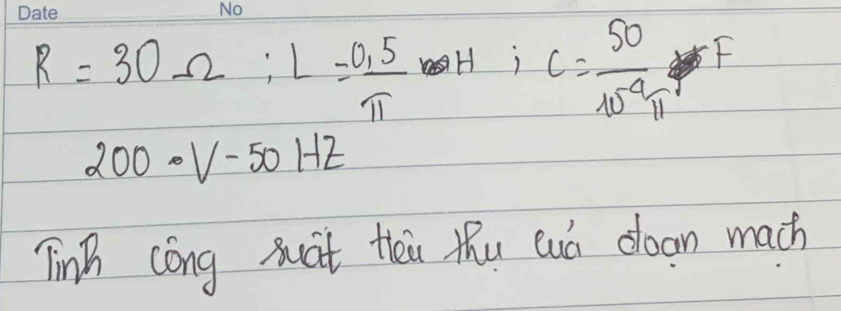 Date No
R = 30 Ω ; L = 0,5/π H ; C = 50/10⁻⁴π F
200 V - 50 HZ
Tính công suất tiêu thụ của đoạn mạch